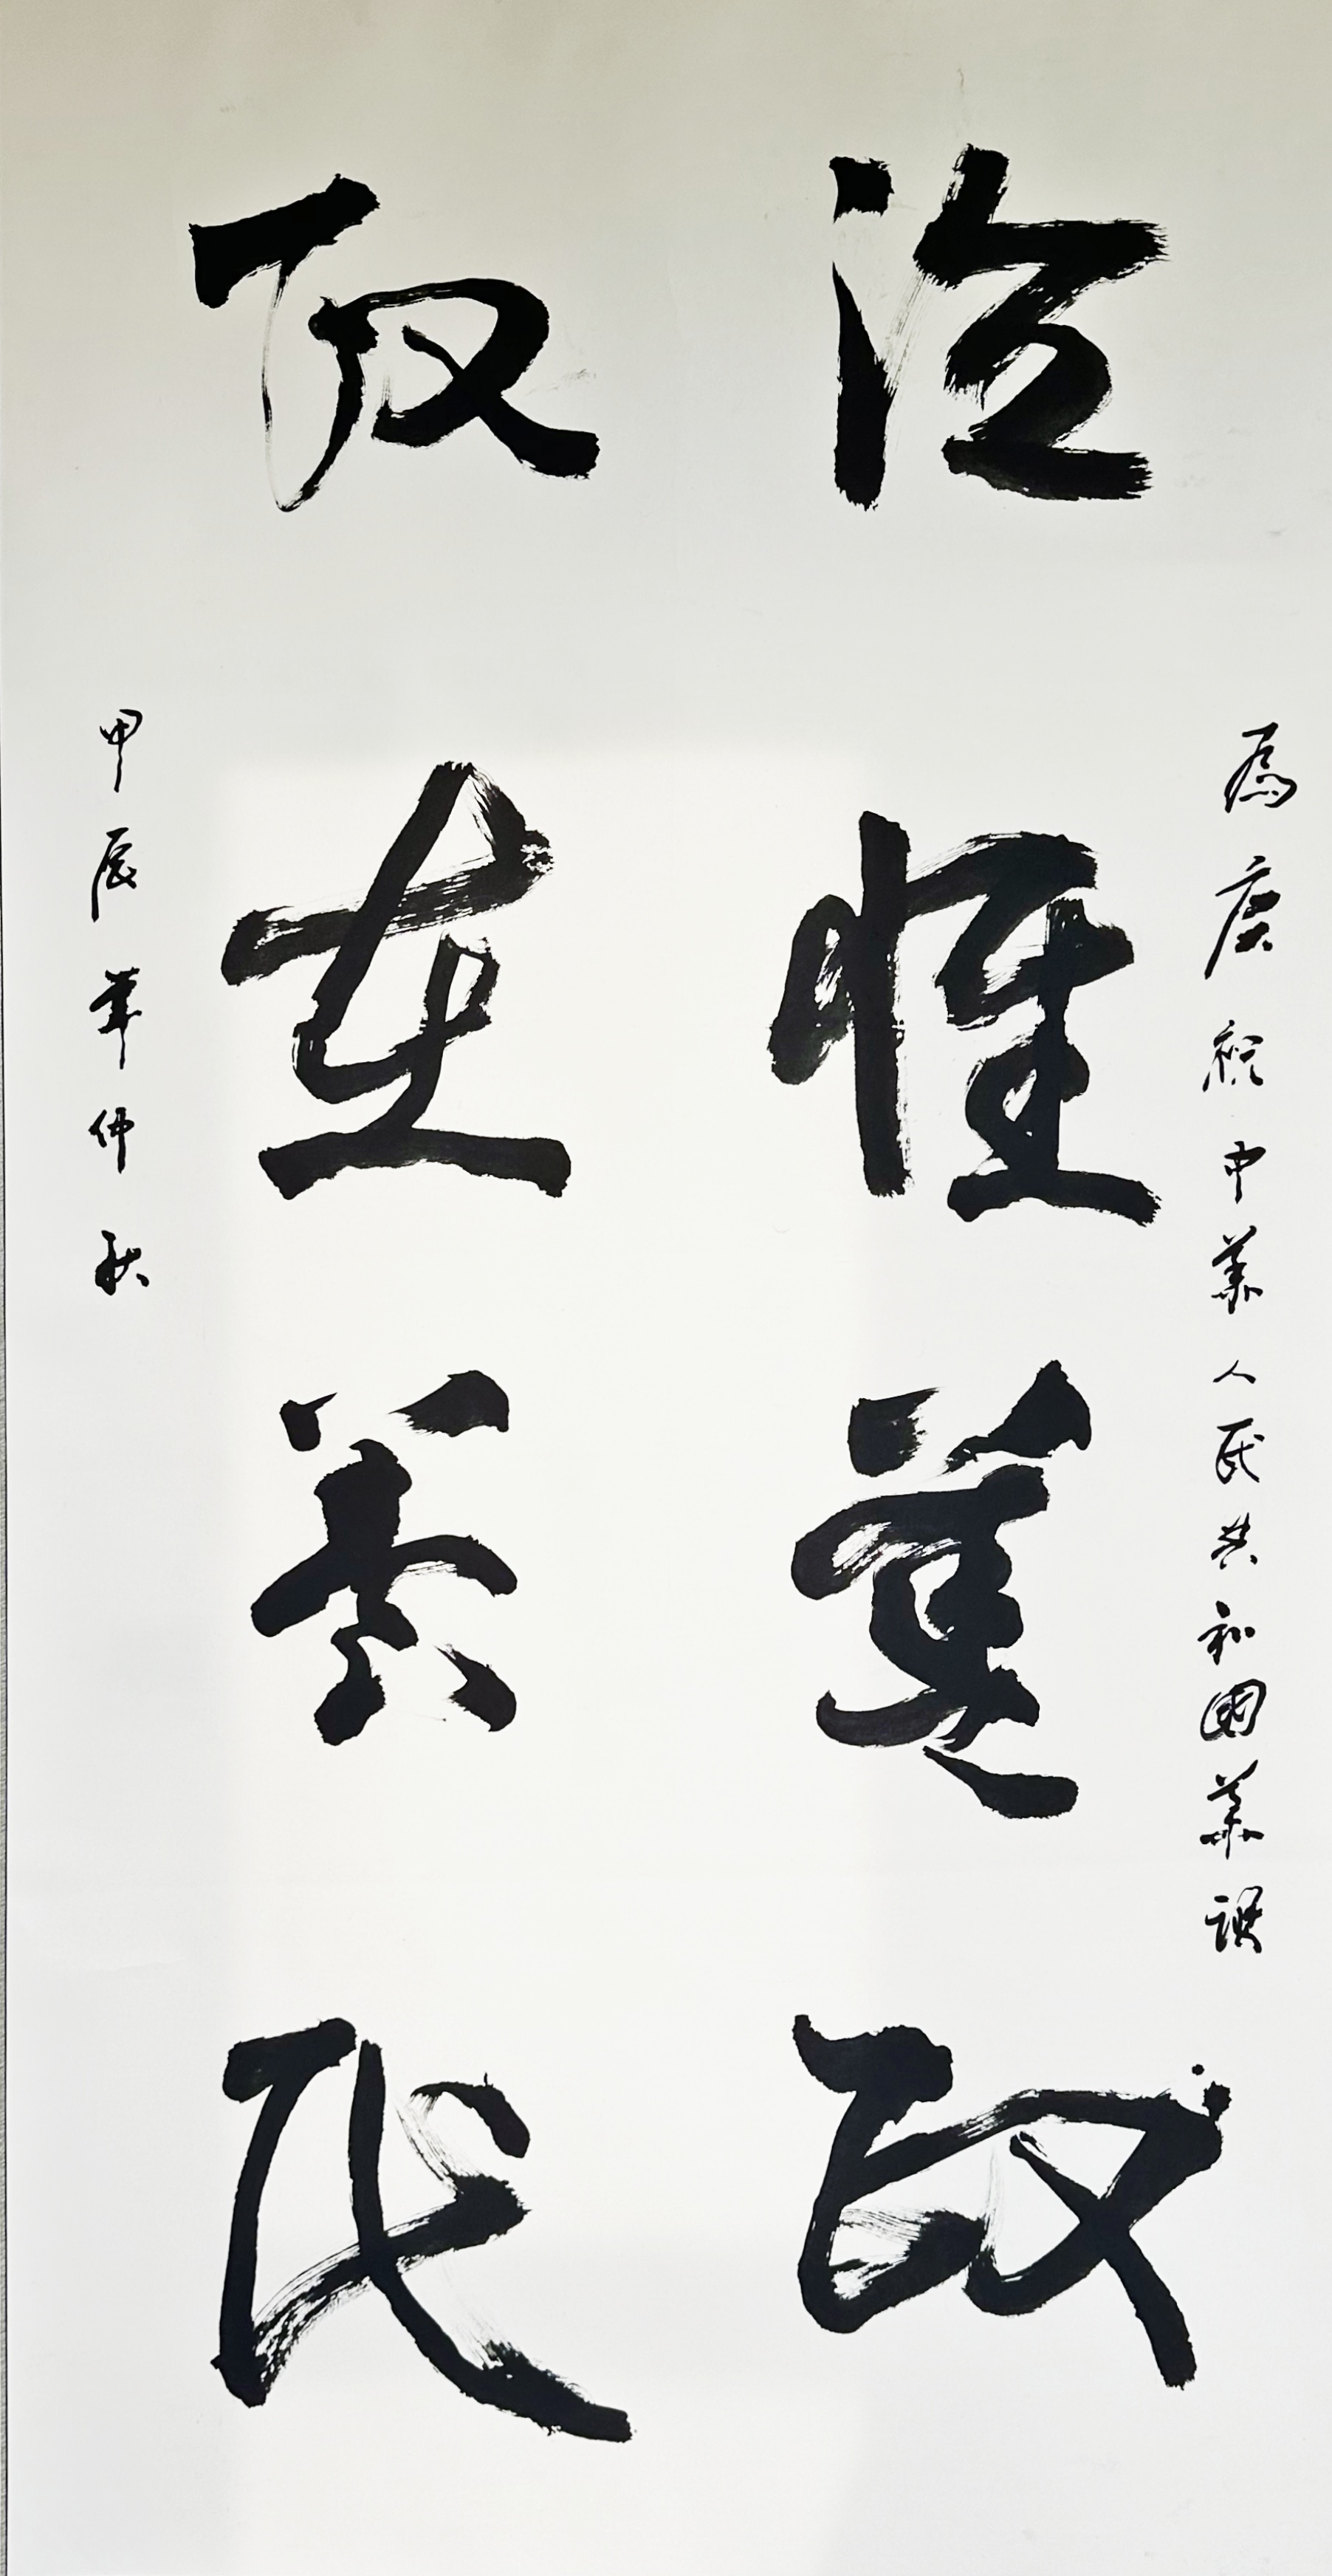 為慶祝中華人民共和國華誕
德惟善政
政在養民
甲辰年仲秋